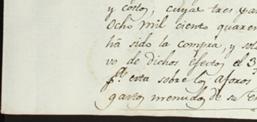 y costo; cuyas tres par
Ocho mil ciento quaren
ha sido la compra, y sol
vo de dichos Efectos, el 3
esta sobre los aforos
gastos menudos de su E